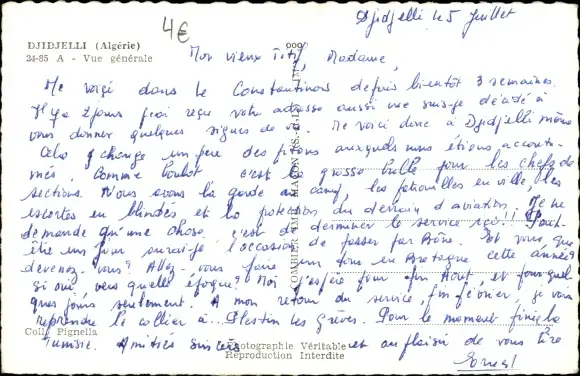 4€
Djidjelli le 5 Juillet
DJIDJELLI (Algérie)
24-85 A - Vue générale
Mon vieux Titi, Madame,
Me voici dans le Constantinois depuis bientôt 3 semaines.
Il y a 2 jours j'ai reçu votre adresse aussi me suis-je décidé à
vous donner quelques signes de vie. Me voici donc à Djidjelli même
Cela change un peu des pitons auxquels nous étions accoutu-
més. Comme boulot c'est la grosse bulle pour les chefs de
sections. Nous avons la garde au camp, les patrouilles en ville, les
escortes en blindés et la protection du terrain d'aviation. Je ne
demande qu'une chose, c'est de terminer le service ici!! Peut-
être un jour aurai-je l'occasion de passer par Bône. Et vous, que
devenez-vous? Allez-vous faire un tour en Bretagne cette année?
Si oui, vers quelle époque? Moi j'espère pour fin Août, et pour quel-
ques jours seulement. A mon retour du service, fin février, je vais
reprendre le collier à ... Plestin les Grèves. Pour le moment fini la
Tunisie. Amitiés sincères et au plaisir de vous lire
Coll. Pignella
Photographie Véritable
Reproduction Interdite